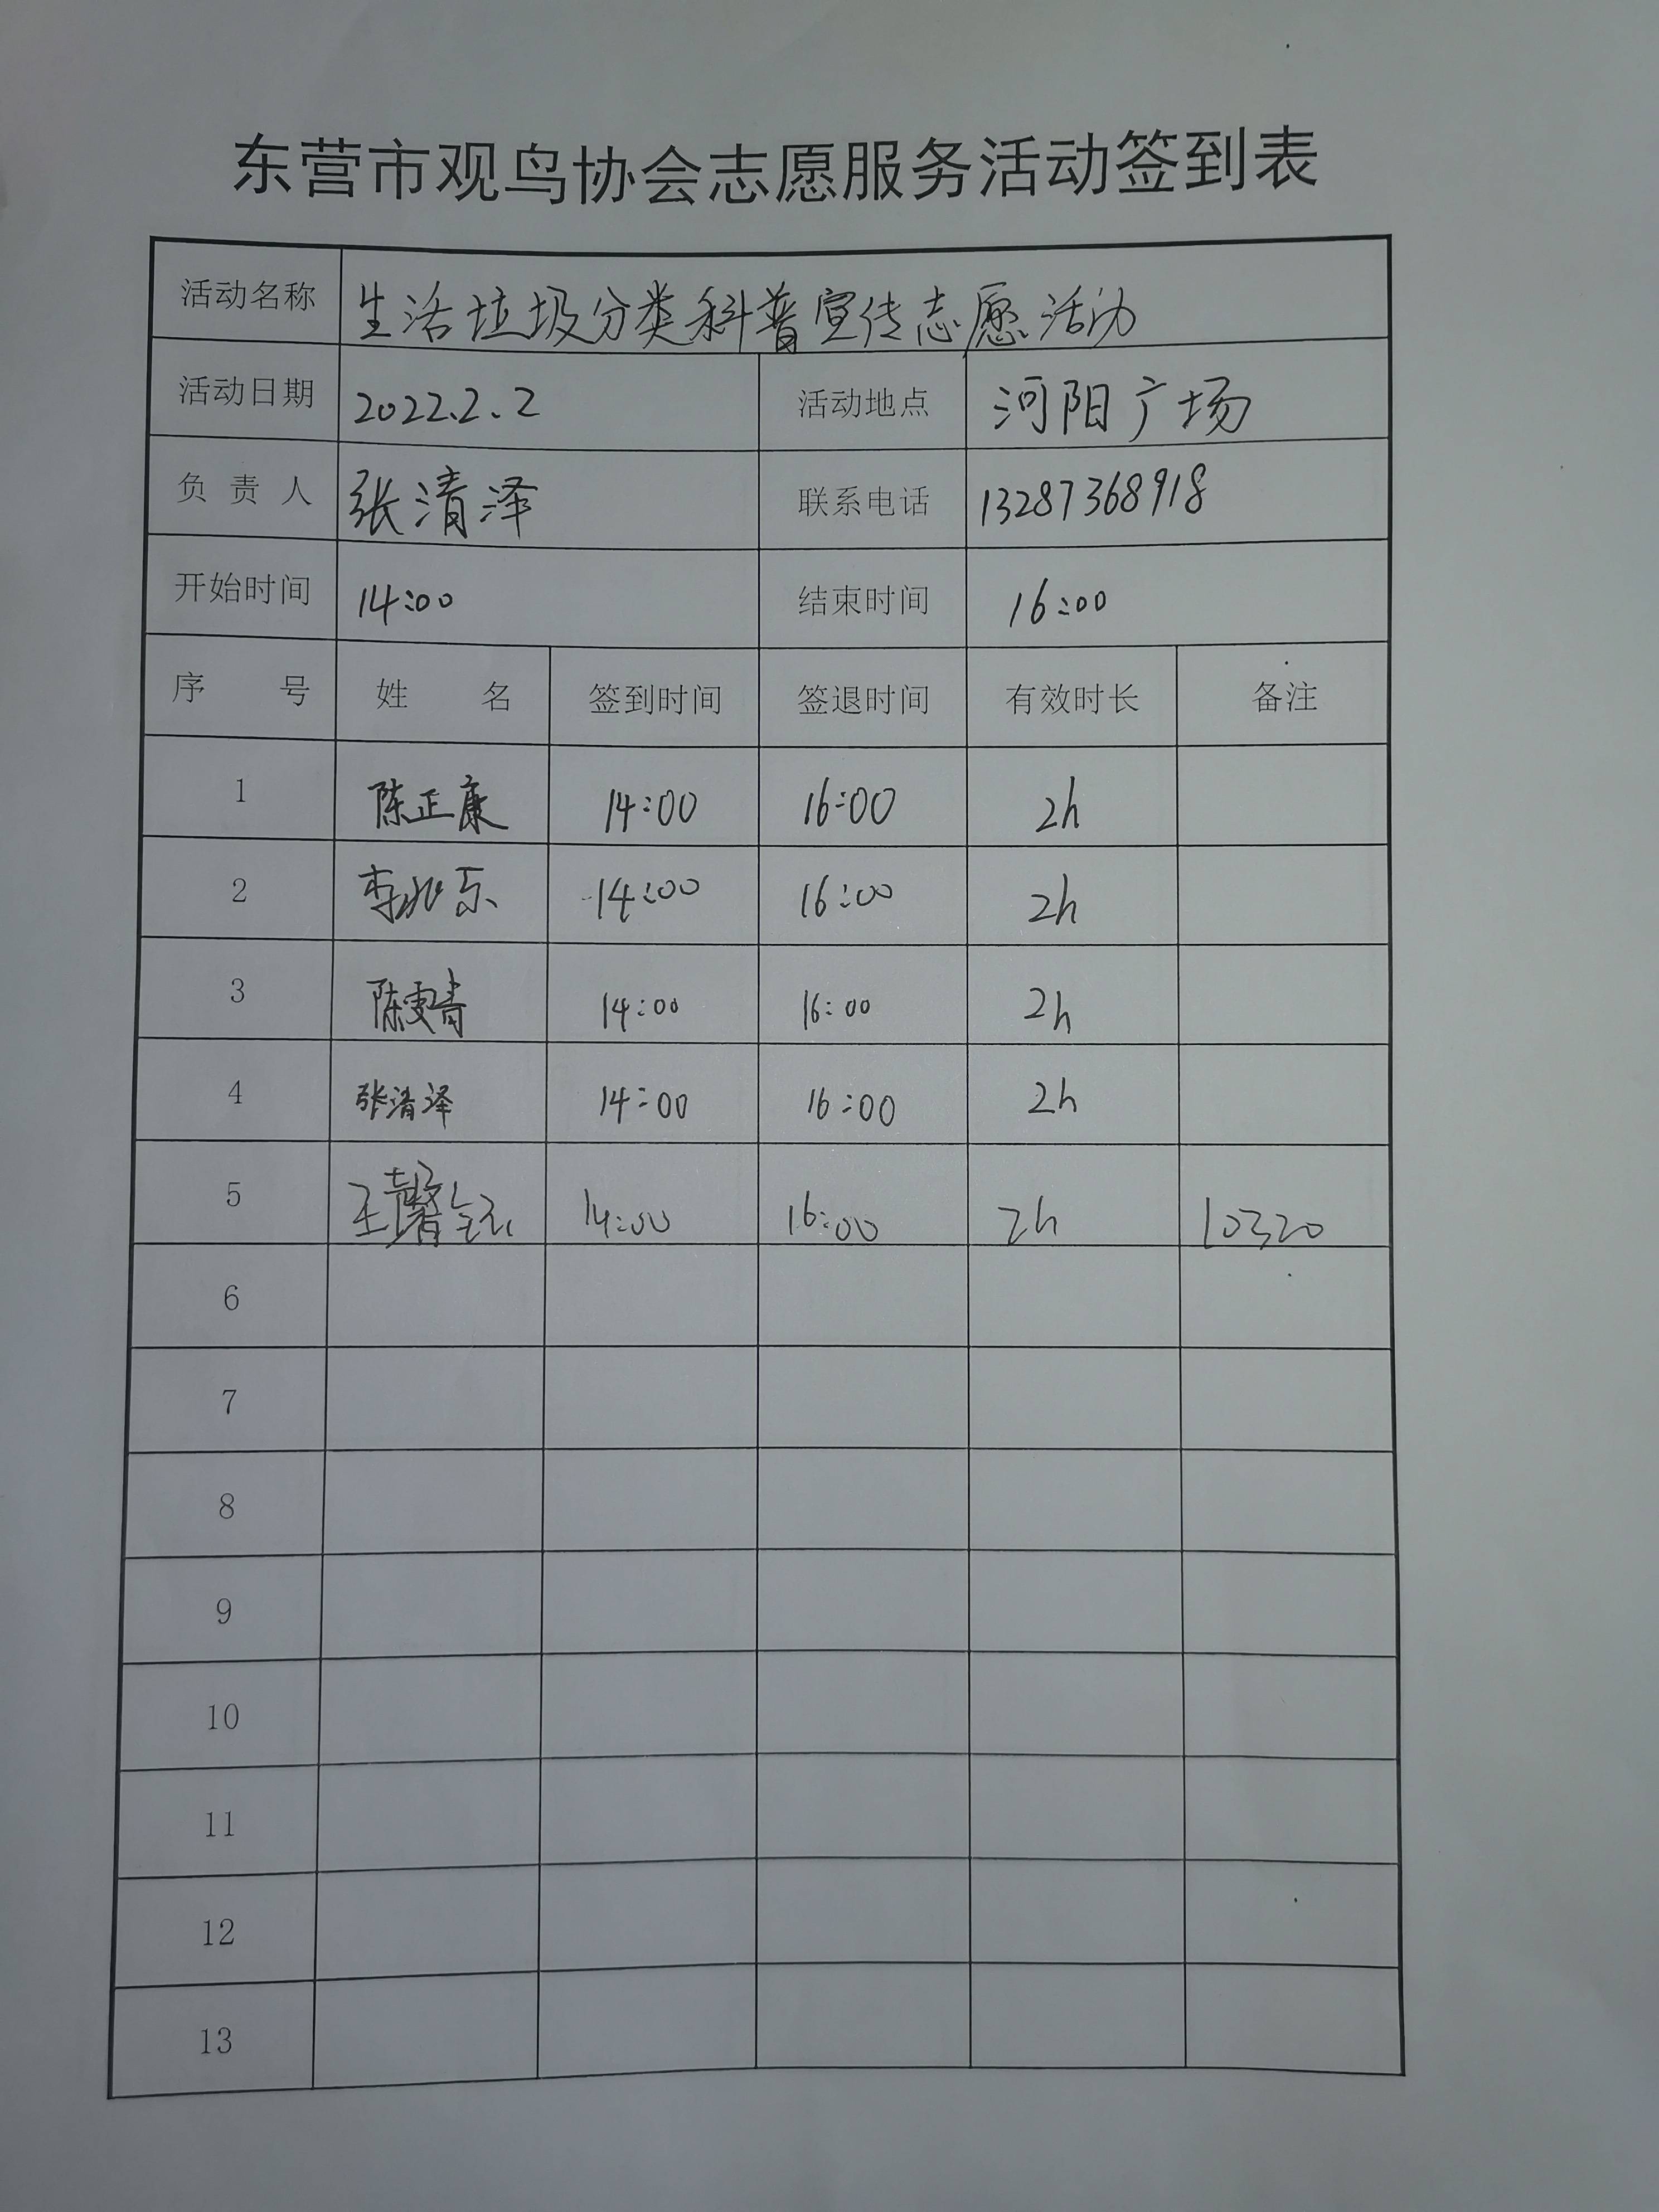 东营市观鸟协会志愿服务活动签到表
活动名称 生活垃圾分类科普宣传志愿活动
活动日期 2022.2.2 活动地点 河阳广场
负责人 张清泽 联系电话 13287368918
开始时间 14:00 结束时间 16:00
序号 姓名 签到时间 签退时间 有效时长 备注
1 陈正康 14:00 16:00 2h
2 14:00 16:00 2h
3 陈雯青 14:00 16:00 2h
4 张清泽 14:00 16:00 2h
5 14:00 16:00 2h 10320
6
7
8
9
10
11
12
13